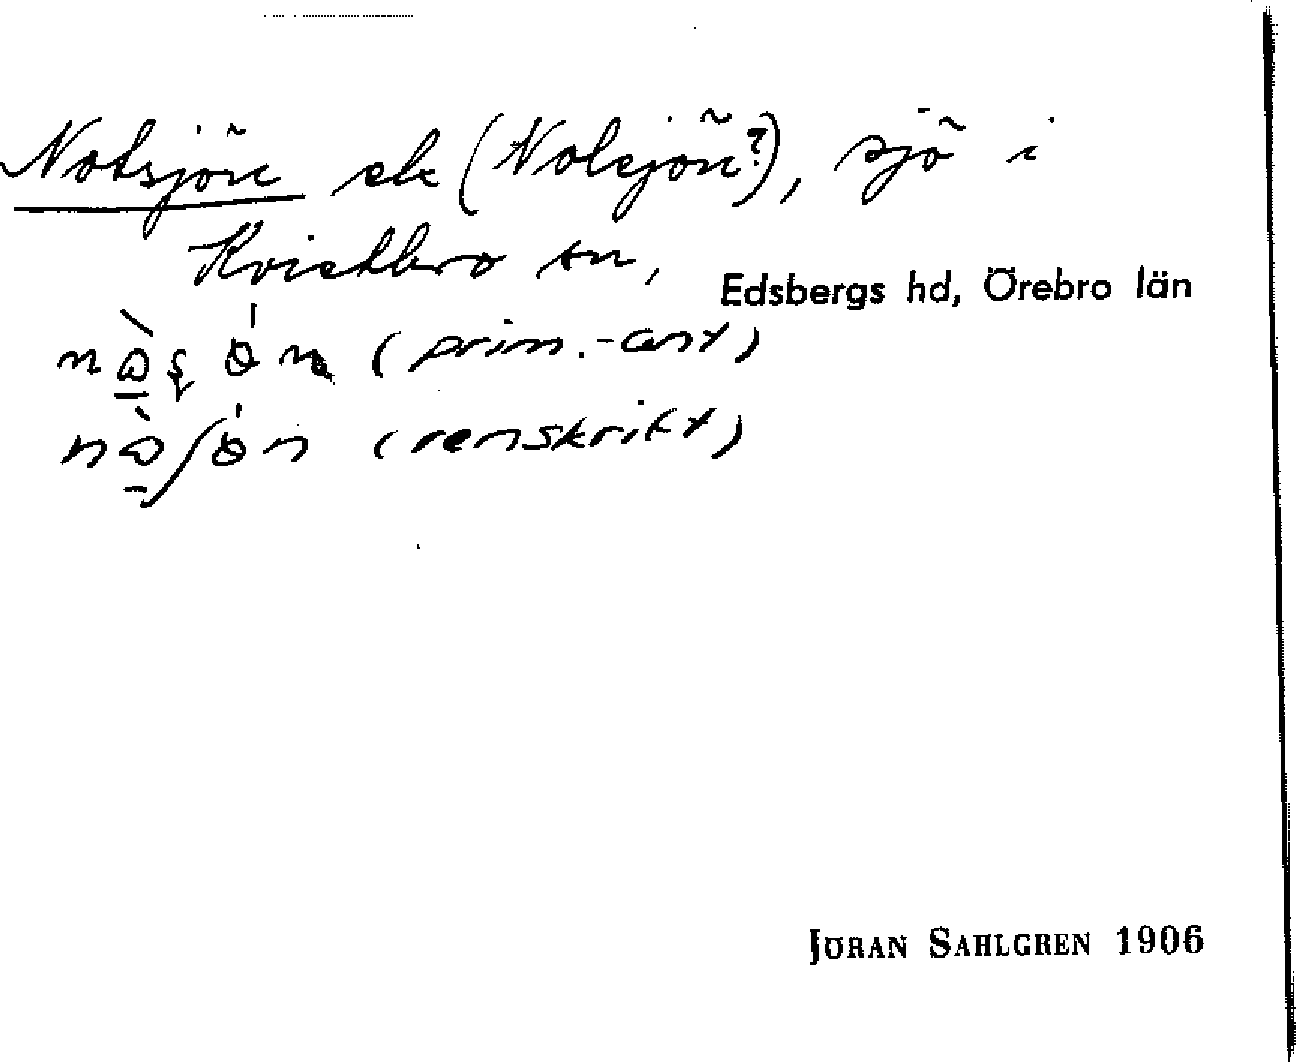 Notsjön ek (Nolsjön?), sjö i
Kvistbro sn,
Edsbergs hd, Örebro län
(prim.-ant)
(renskrift)
JÖRAN SAHLGREN 1906